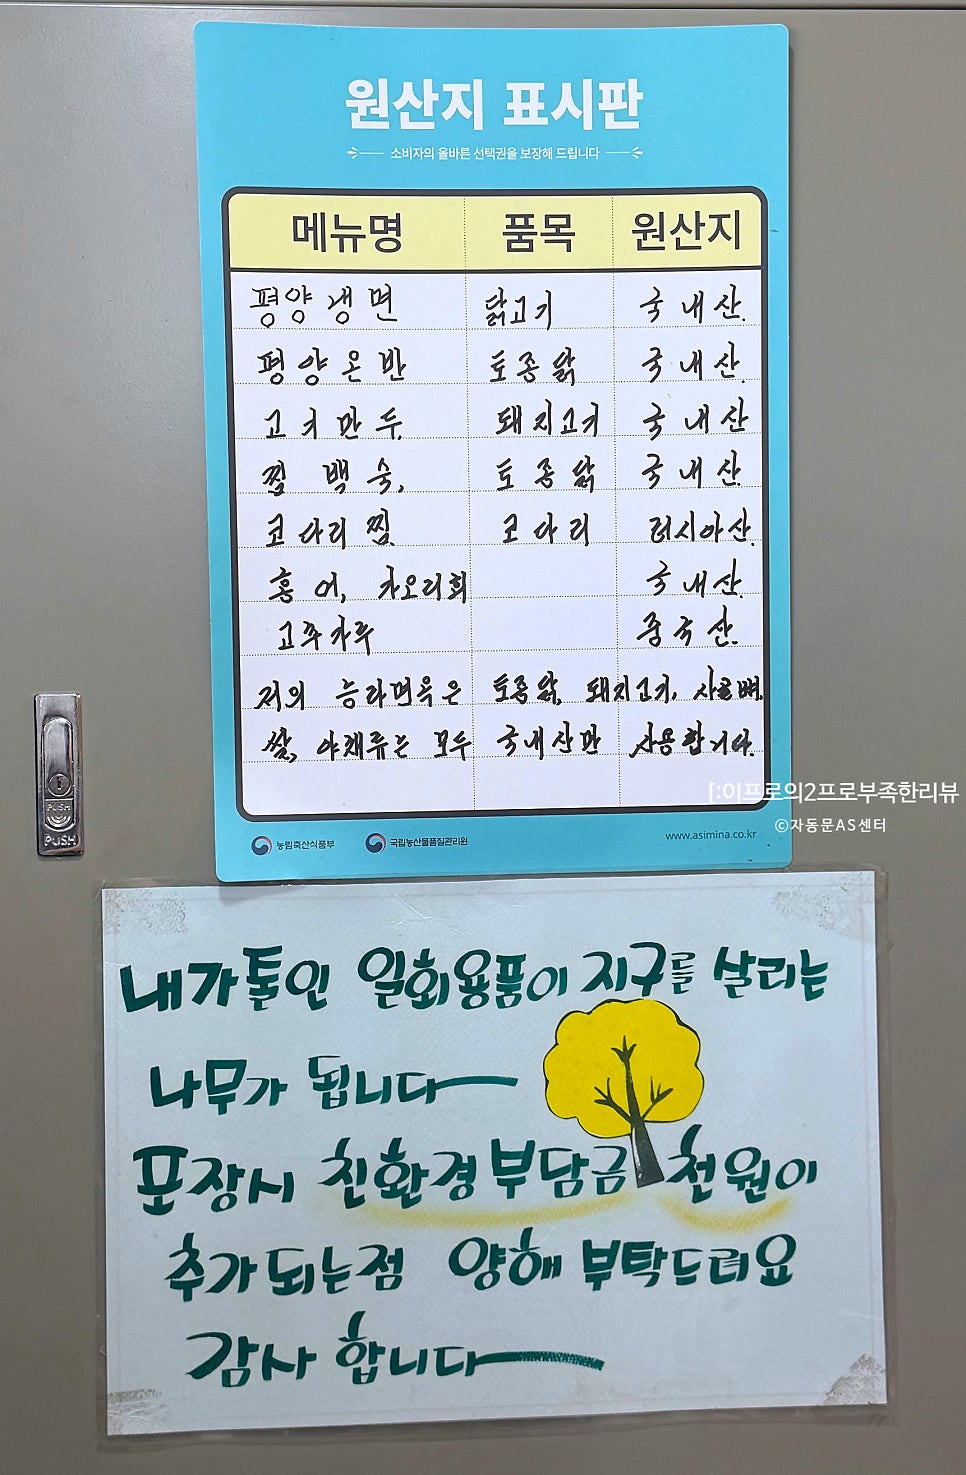 원산지 표시판
소비자의 올바른 선택권을 보장해 드립니다
메뉴명 품목 원산지
평양냉면 닭고기 국내산.
평양온반 토종닭 국내산.
고기만두 돼지고기 국내산
찜백숙, 토종닭 국내산.
코다리찜 코다리 러시아산.
홍어, 가오리회 국내산.
고추가루 중국산.
저의 능라면옥은 토종닭, 돼지고기, 사골뼈,
쌀, 야채류는 모두 국내산만 사용합니다.
[:이프로의2프로부족한리뷰
©자동문AS센터
농림축산식품부 국립농산물품질관리원 www.asimina.co.kr
PUSH
PUSH
내가 들인 일회용품이 지구를 살리는
나무가 됩니다
포장시 친환경부담금 천원이
추가되는점 양해 부탁드려요
감사합니다